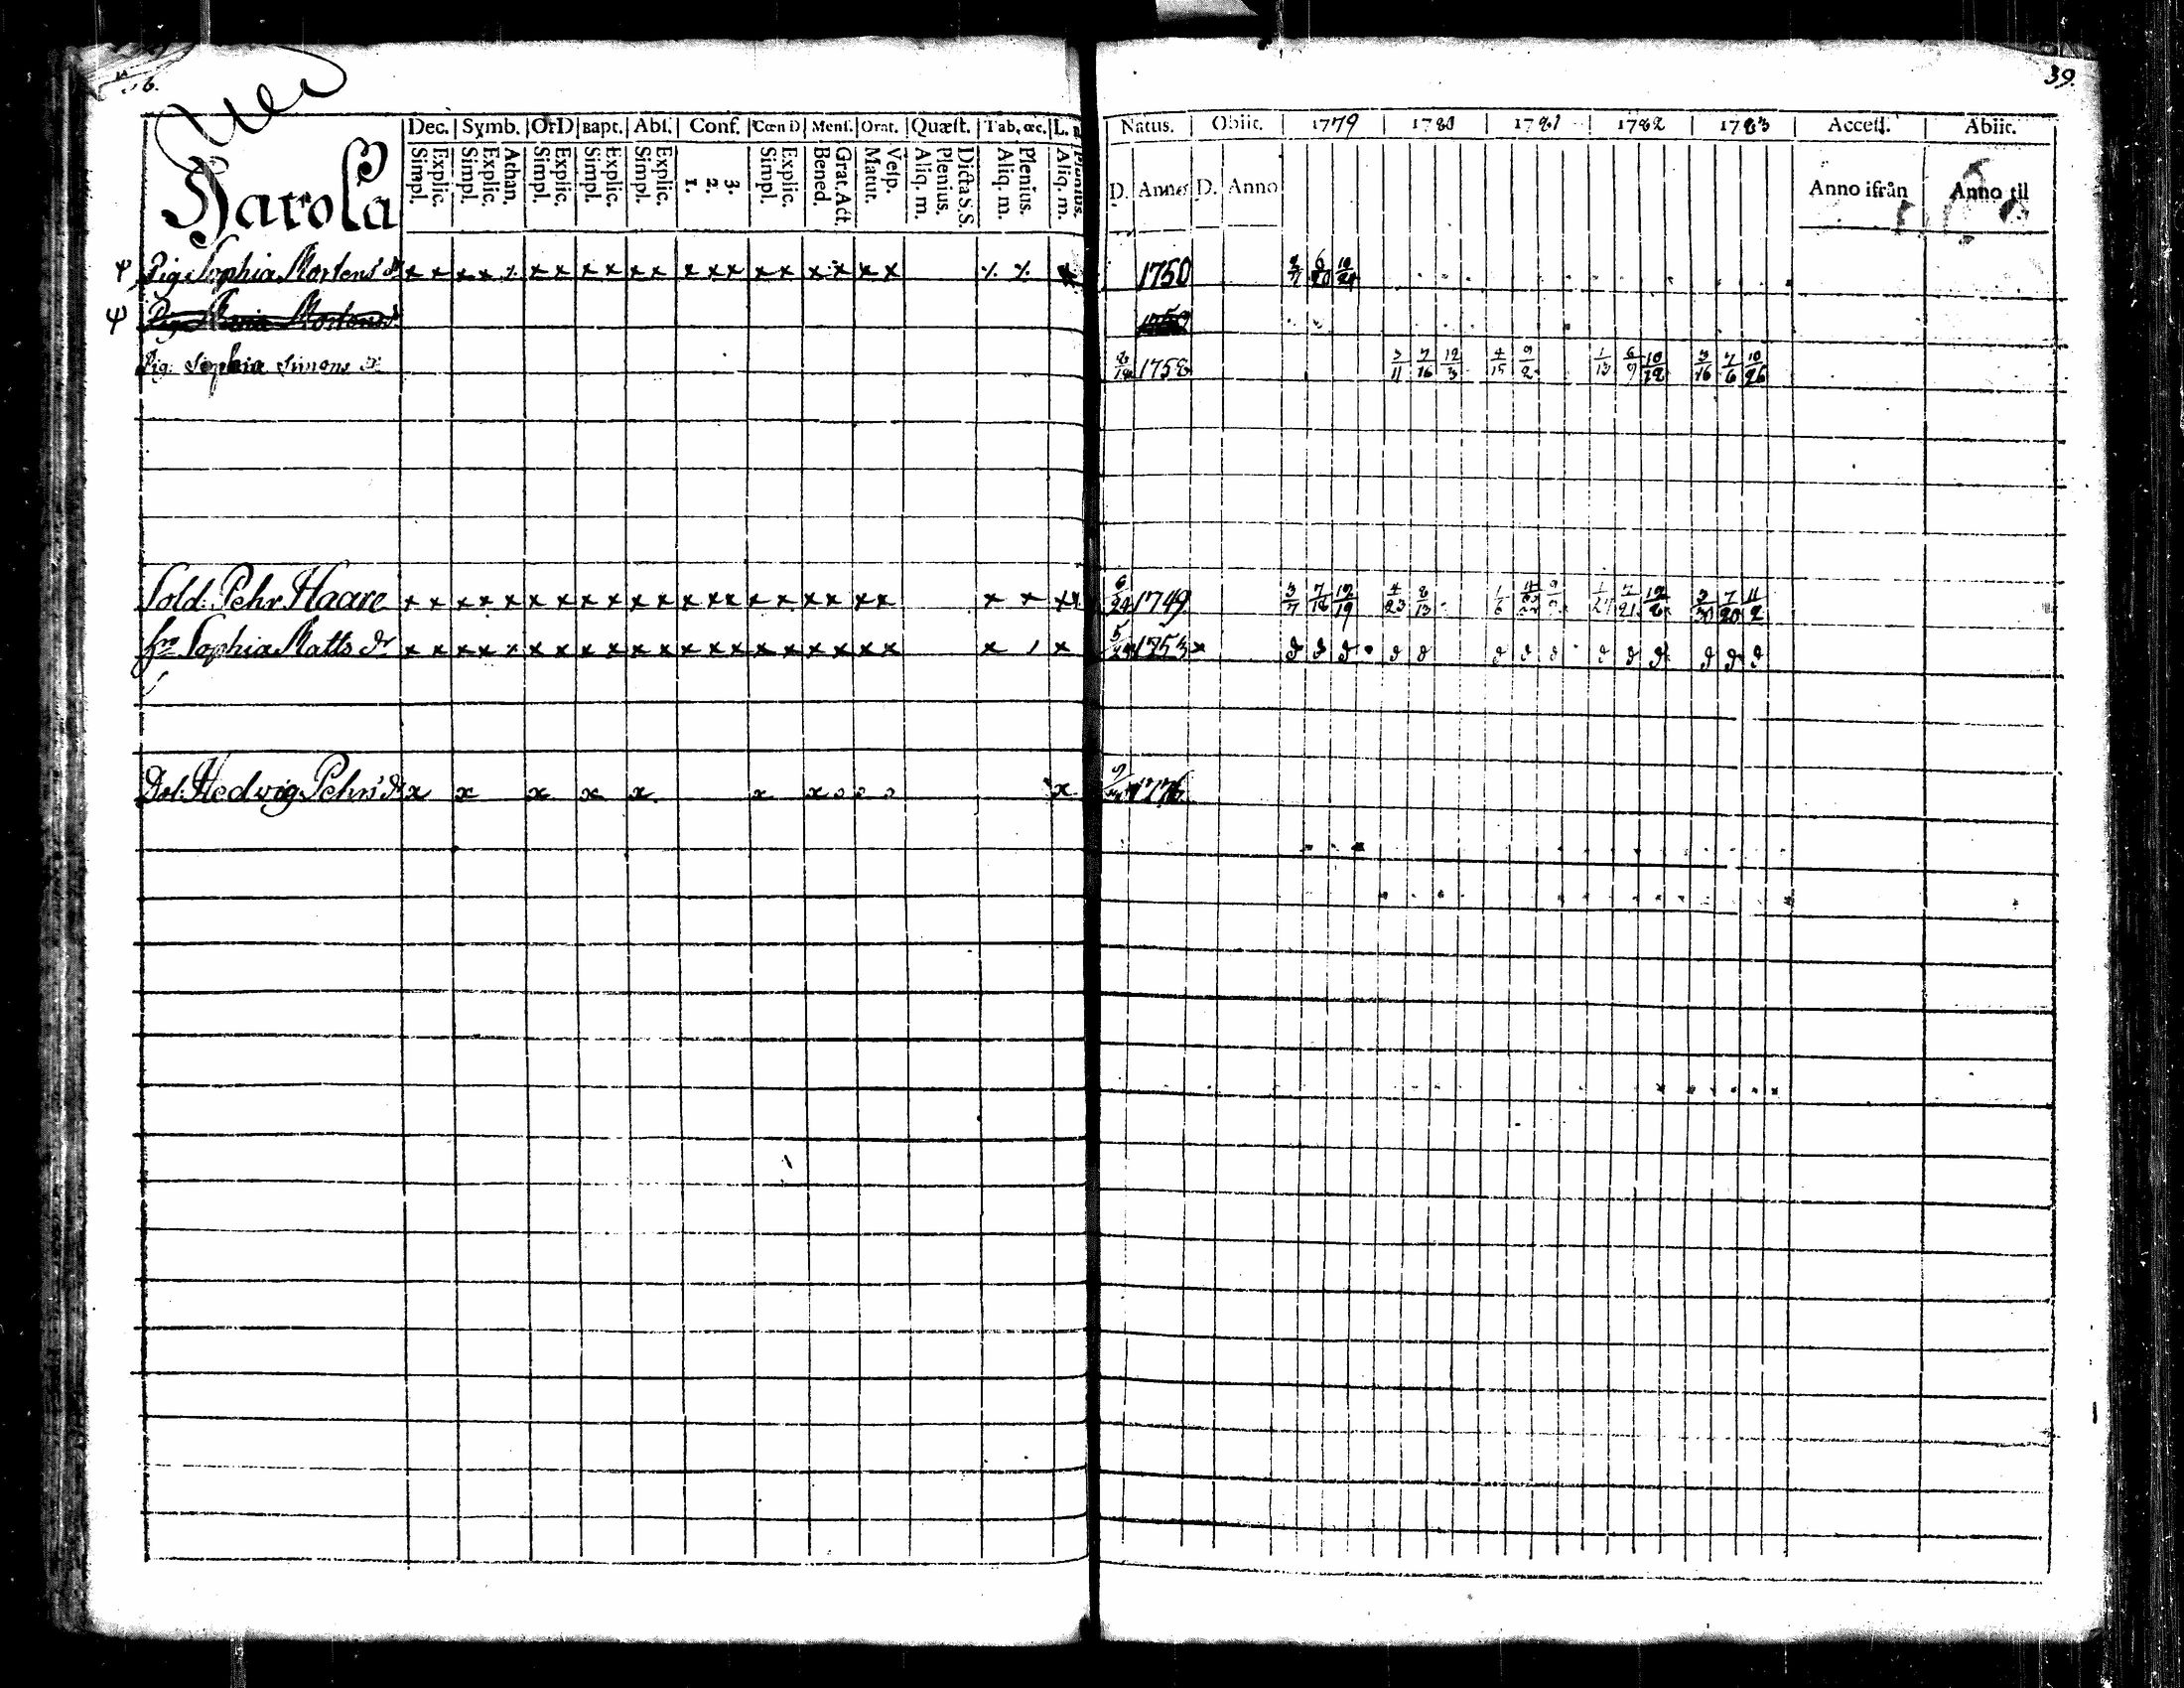 39.
Harola
Dec. Symb. OrD Bapt. Abſ. Conf. Cœn D Menſ. Orat. Quæſt. Tab. œc. L.
Simpl. Explic. Simpl. Explic. Athan. Simpl. Explic. Simpl. Explic. Simpl. Explic. 1. 2. 3. Simpl. Explic. Bened. Grat. Act. Matut. Veſp. Aliq. m. Plenius. Dicta S.S. Aliq. m. Plenius. Aliq. m. Plenius.
Natus. Obiit. 1779 1780 1781 1782 1783 Acceſſ. Abiit.
D. Anno D. Anno Anno ifrån Anno til
Ψ Pig. Sophia Mortens dr x x x x ٪ x x x x x x x x x x x x x x x ٪ ٪ x 1750 2/7 6/20 10/24
Ψ Pig. Mortens dr
Pig. Sophia Simons dr 1758 3/11 7/16 12/3 4/15 9/2 1/13 6/9 10/12 3/16 7/6 10/26
Sold. Pehr Haare x x x x x x x x x x x x x x x x x x x x x x x 6/24 1749 3/7 7/18 12/19 4/23 8/13 1/6 7/21 12/8 3/30 7/20 11/2
hu Sophia Matts dr x x x x x x x x x x x x x x x x x x x x x x 5/24 1753 x d d d d d d d d d d d d d d
Dot. Hedvig Pehrs dr x x x x x x x x 1776